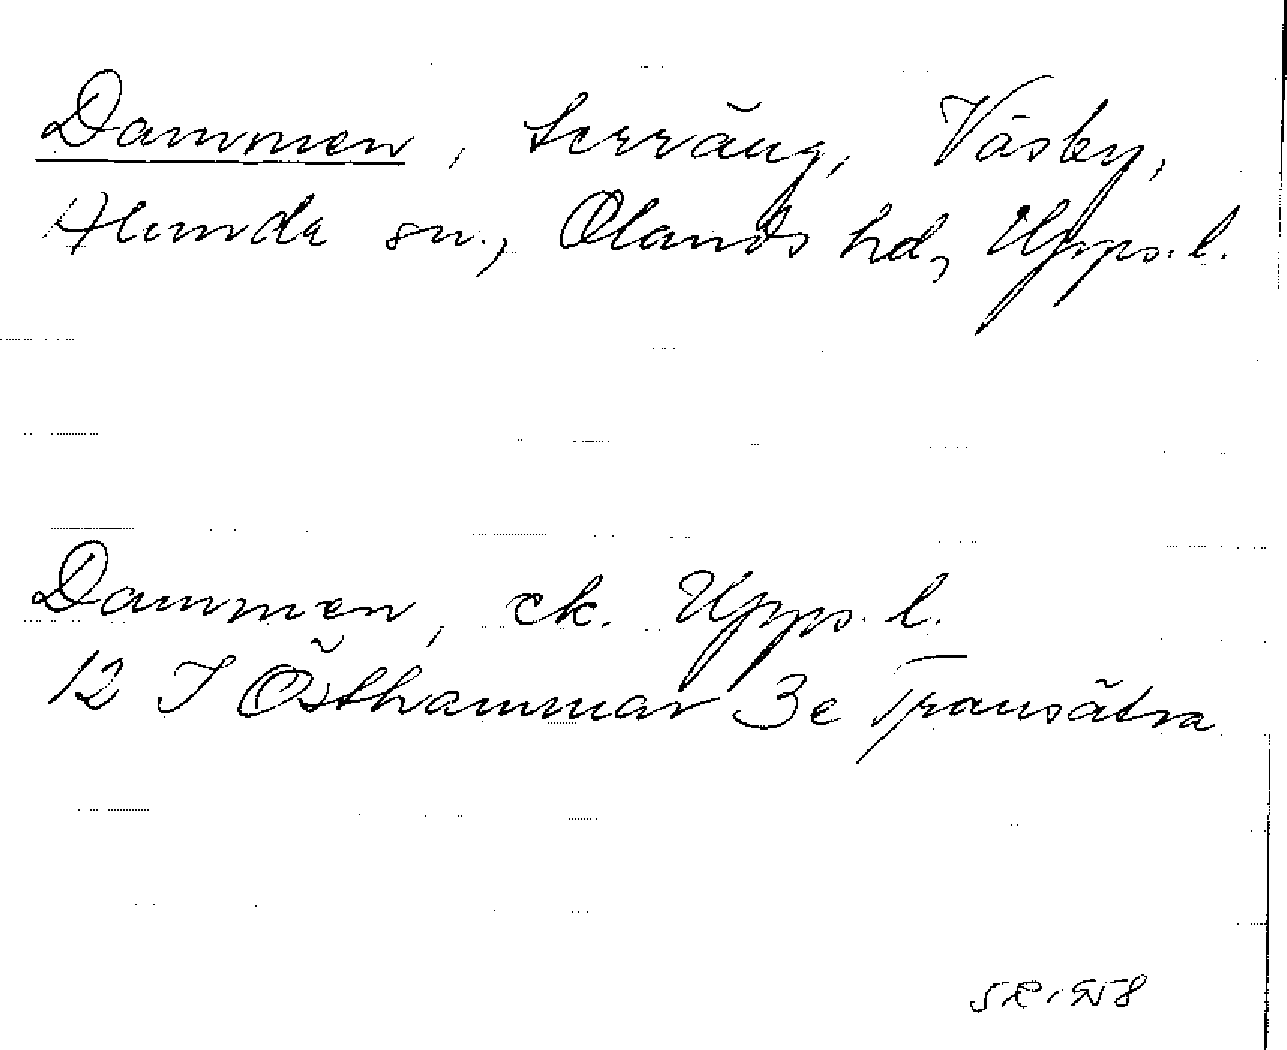 Dammen, terräng, Väsby,
Alunda sn., Olands hd, Upps. l.
Dammen, ek. Upps. l.
12 I Östhammar 3e Transätra
SR 1958